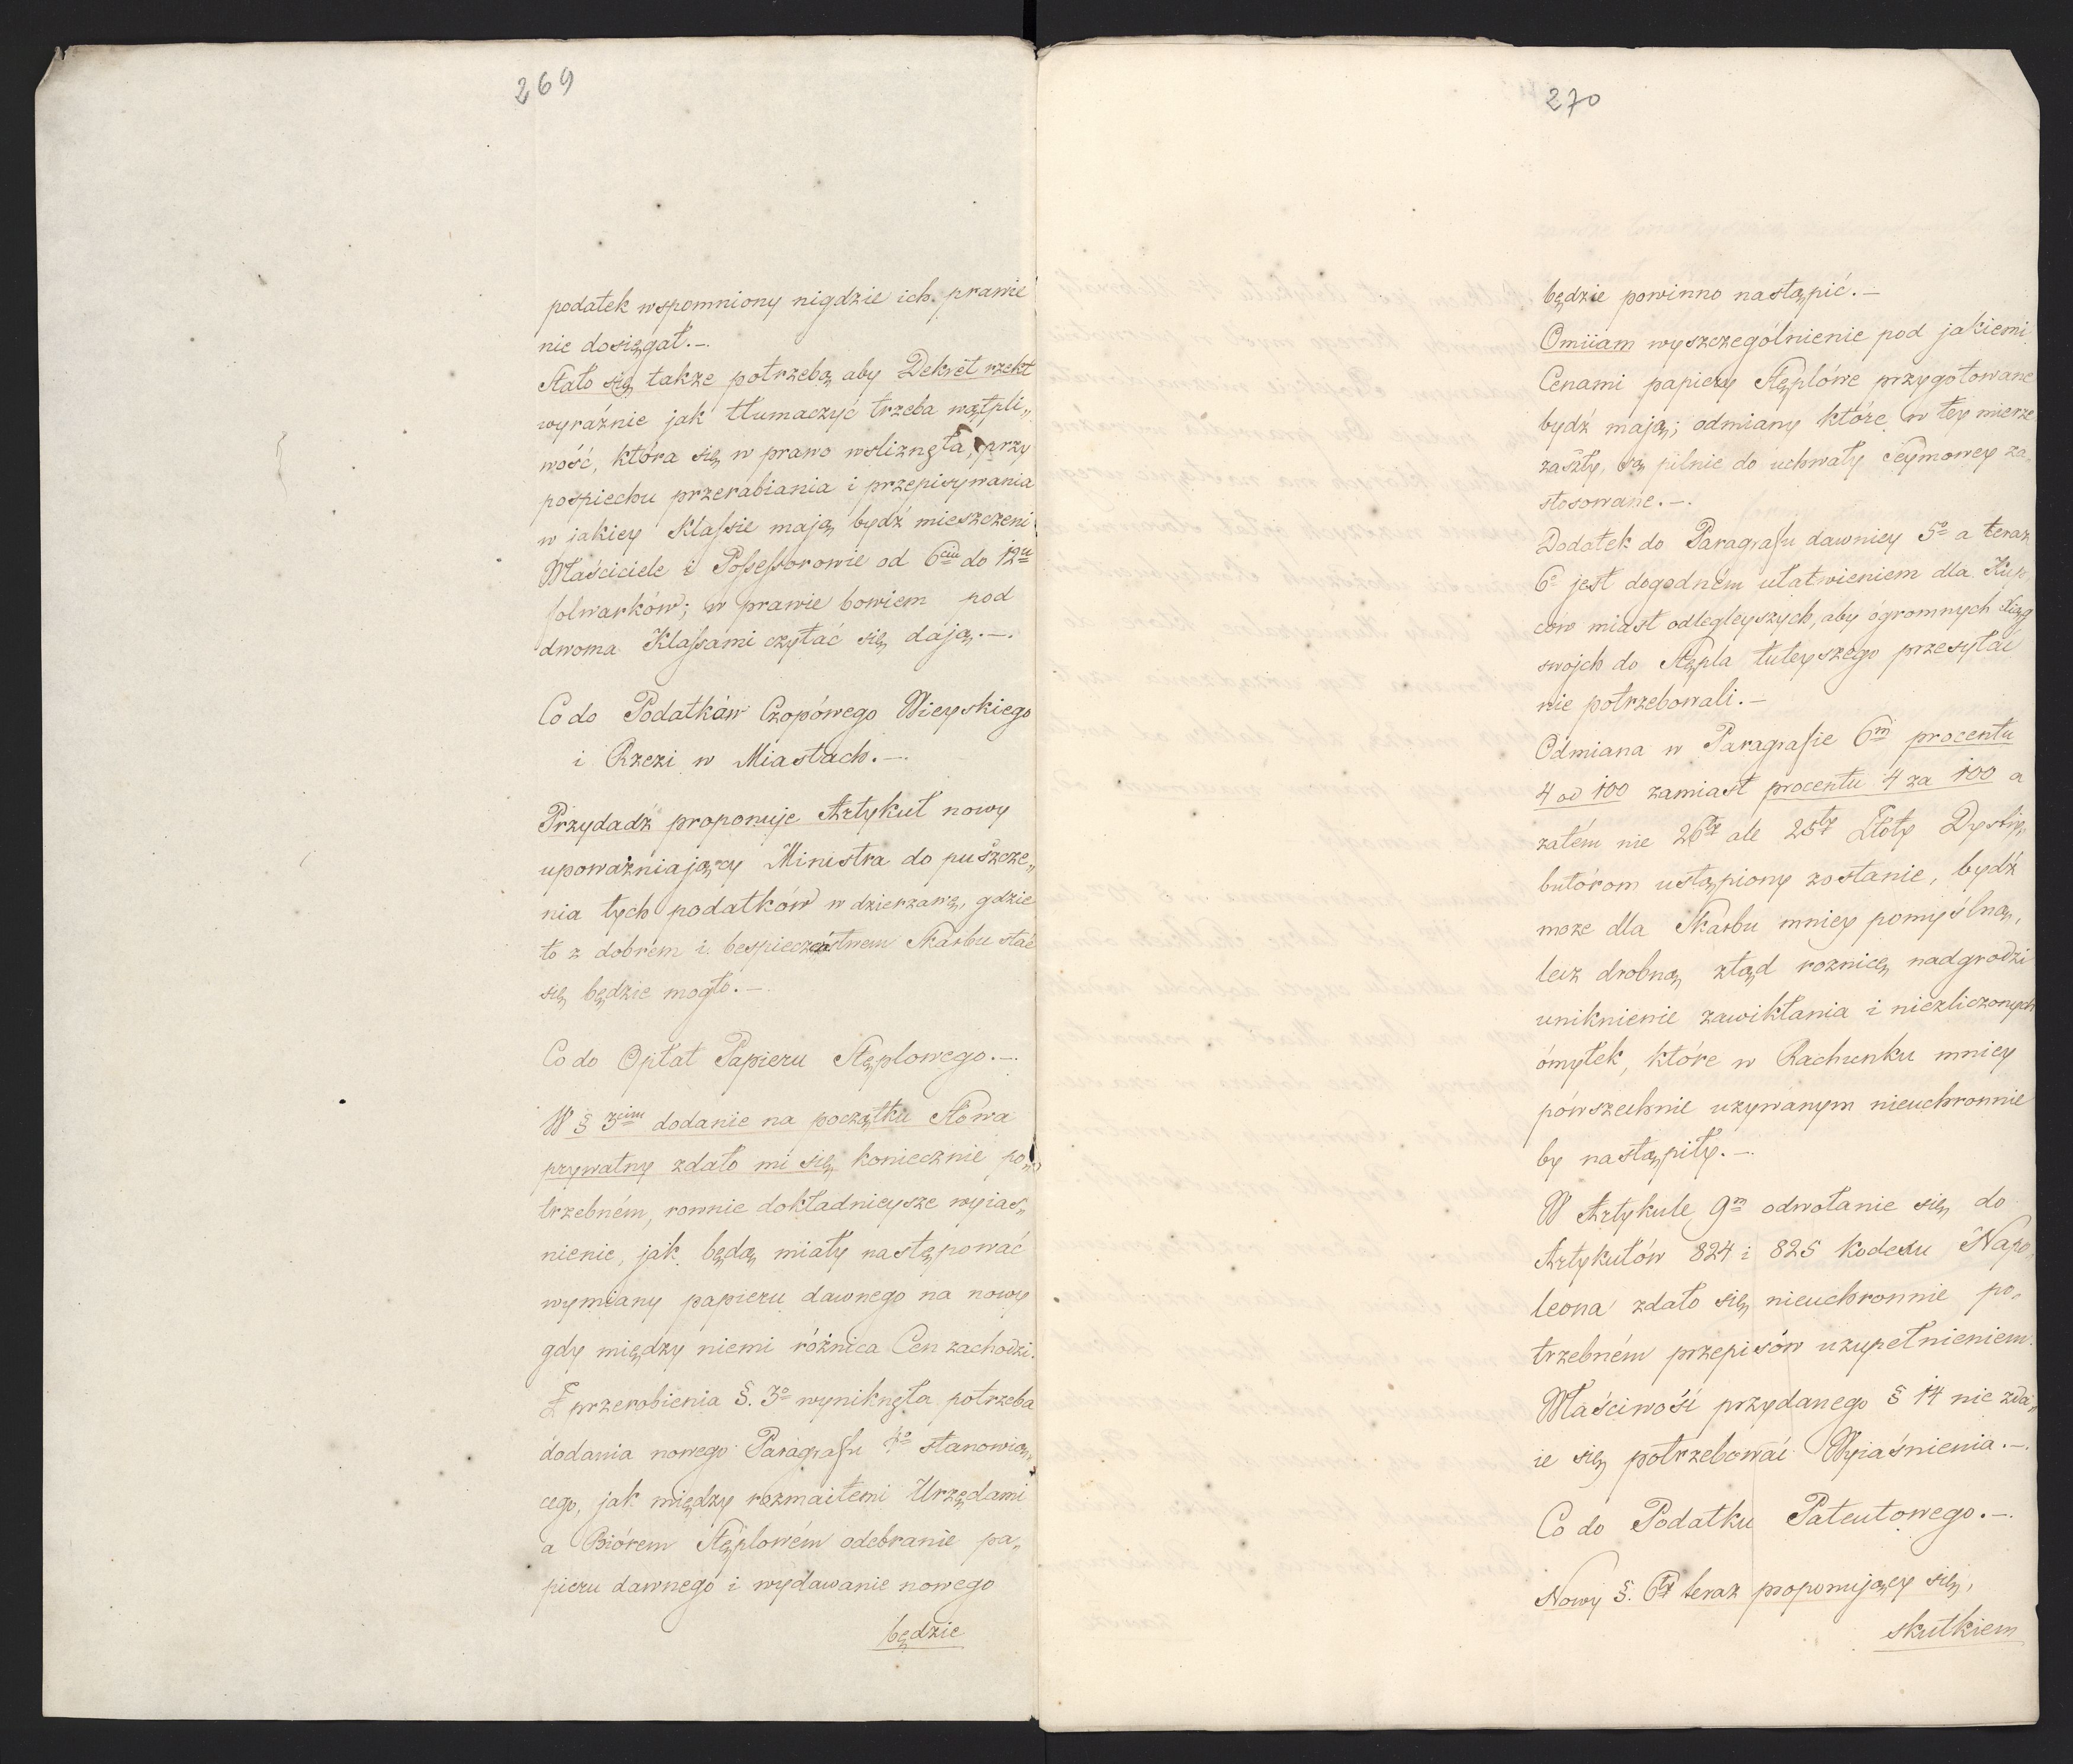 269
podatek wspomniony nigdzie ich prawie
nie dosięgał.—.
Stało się także potrzebą aby Dekret rzekł
wyraźnie jak tłumaczyć trzeba wątpli„
wość, która się w prawo wslizneła, przy
pospiechu przerabiania i przepisywania
w jakiey Klassie mają bydź mieszczeni
Właściciele i Possessorowie od 6ciu do 12u
folwarków; w prawie bowiem pod
dwoma Klassami czytać się dają.—.
Co do Podatków Czopówego Wieyskiego
i Rzezi w Miastach.—.
Przydadź proponuje Artykuł nowy
upoważniający Ministra do puszcze„
nia tych podatków w dzierzawę, gdzie
to z dobrém i bespieczeństwem Skarbu stać
się będzie mogło.—.
Co do Opłat Papieru Stęplowego.—.
W § 3cim dodanie na początku Słowa
prywatny zdało mi się koniecznie po„
trzebném, rownie dokładnieysze wyias„
nienie, jak będą miały następować
wymiany papieru dawnego na nowy
gdy między niemi różnica Cen zachodzi.
Z przerobienia §. 3o wynikneła potrzeba
dodania nowego Paragrafu 4o stanowią„
cego, jak między rozmaitemi Urzędami
a Biórem Stęplowém odebranie pa„
pieru dawnego i wydawanie nowego
będzie
270
będzie powinno nastąpić.—
Omiiam wyszczególnienie pod jakiemi
Cenami papiery Stęplówe przygotowane
bydź mają; odmiany które w tey mierze
zaszły, są pilnie do uchwały Seymowey za„
stosowane.—.
Dodatek do Paragrafu dawniey 5o a teraz
6o jest dogodném ułatwieniem dla Kup„
ców miast odlegleyszych, aby ógromnych Xiąg
swojch do Stępla tuteyszego przesyłać
nie potrzebowali.—
Odmiana w Paragrafie 6m procentu
4 od 100 zamiast procentu 4 za 100 a
zatém nie 26ty ale 25ty Złoty Dystry„
butórom ustąpiony zostanie, bydź
może dla Skarbu mniey pomyślną,
lecz drobną ztąd roznicę nadgrodzi
uniknienie zawikłania i niezliczonych
ómyłek, które w Rachunku mniey
pówszechnie uzywanym nieuchronnie
by nastąpiły.—.
W Artykule 9m odwołanie się do
Artykułów 824 i 825 Kodexu Napo„
leona zdało się nieuchronnie po„
trzebném przepisów uzupełnieniem.
Właściwość przydanego § 14 nie zda„
ie się potrzebować Wyiaśnienia.—.
Co do Podatku Patentowego.—.
Nowy §. 6ty teraz proponujący się,
skutkiem